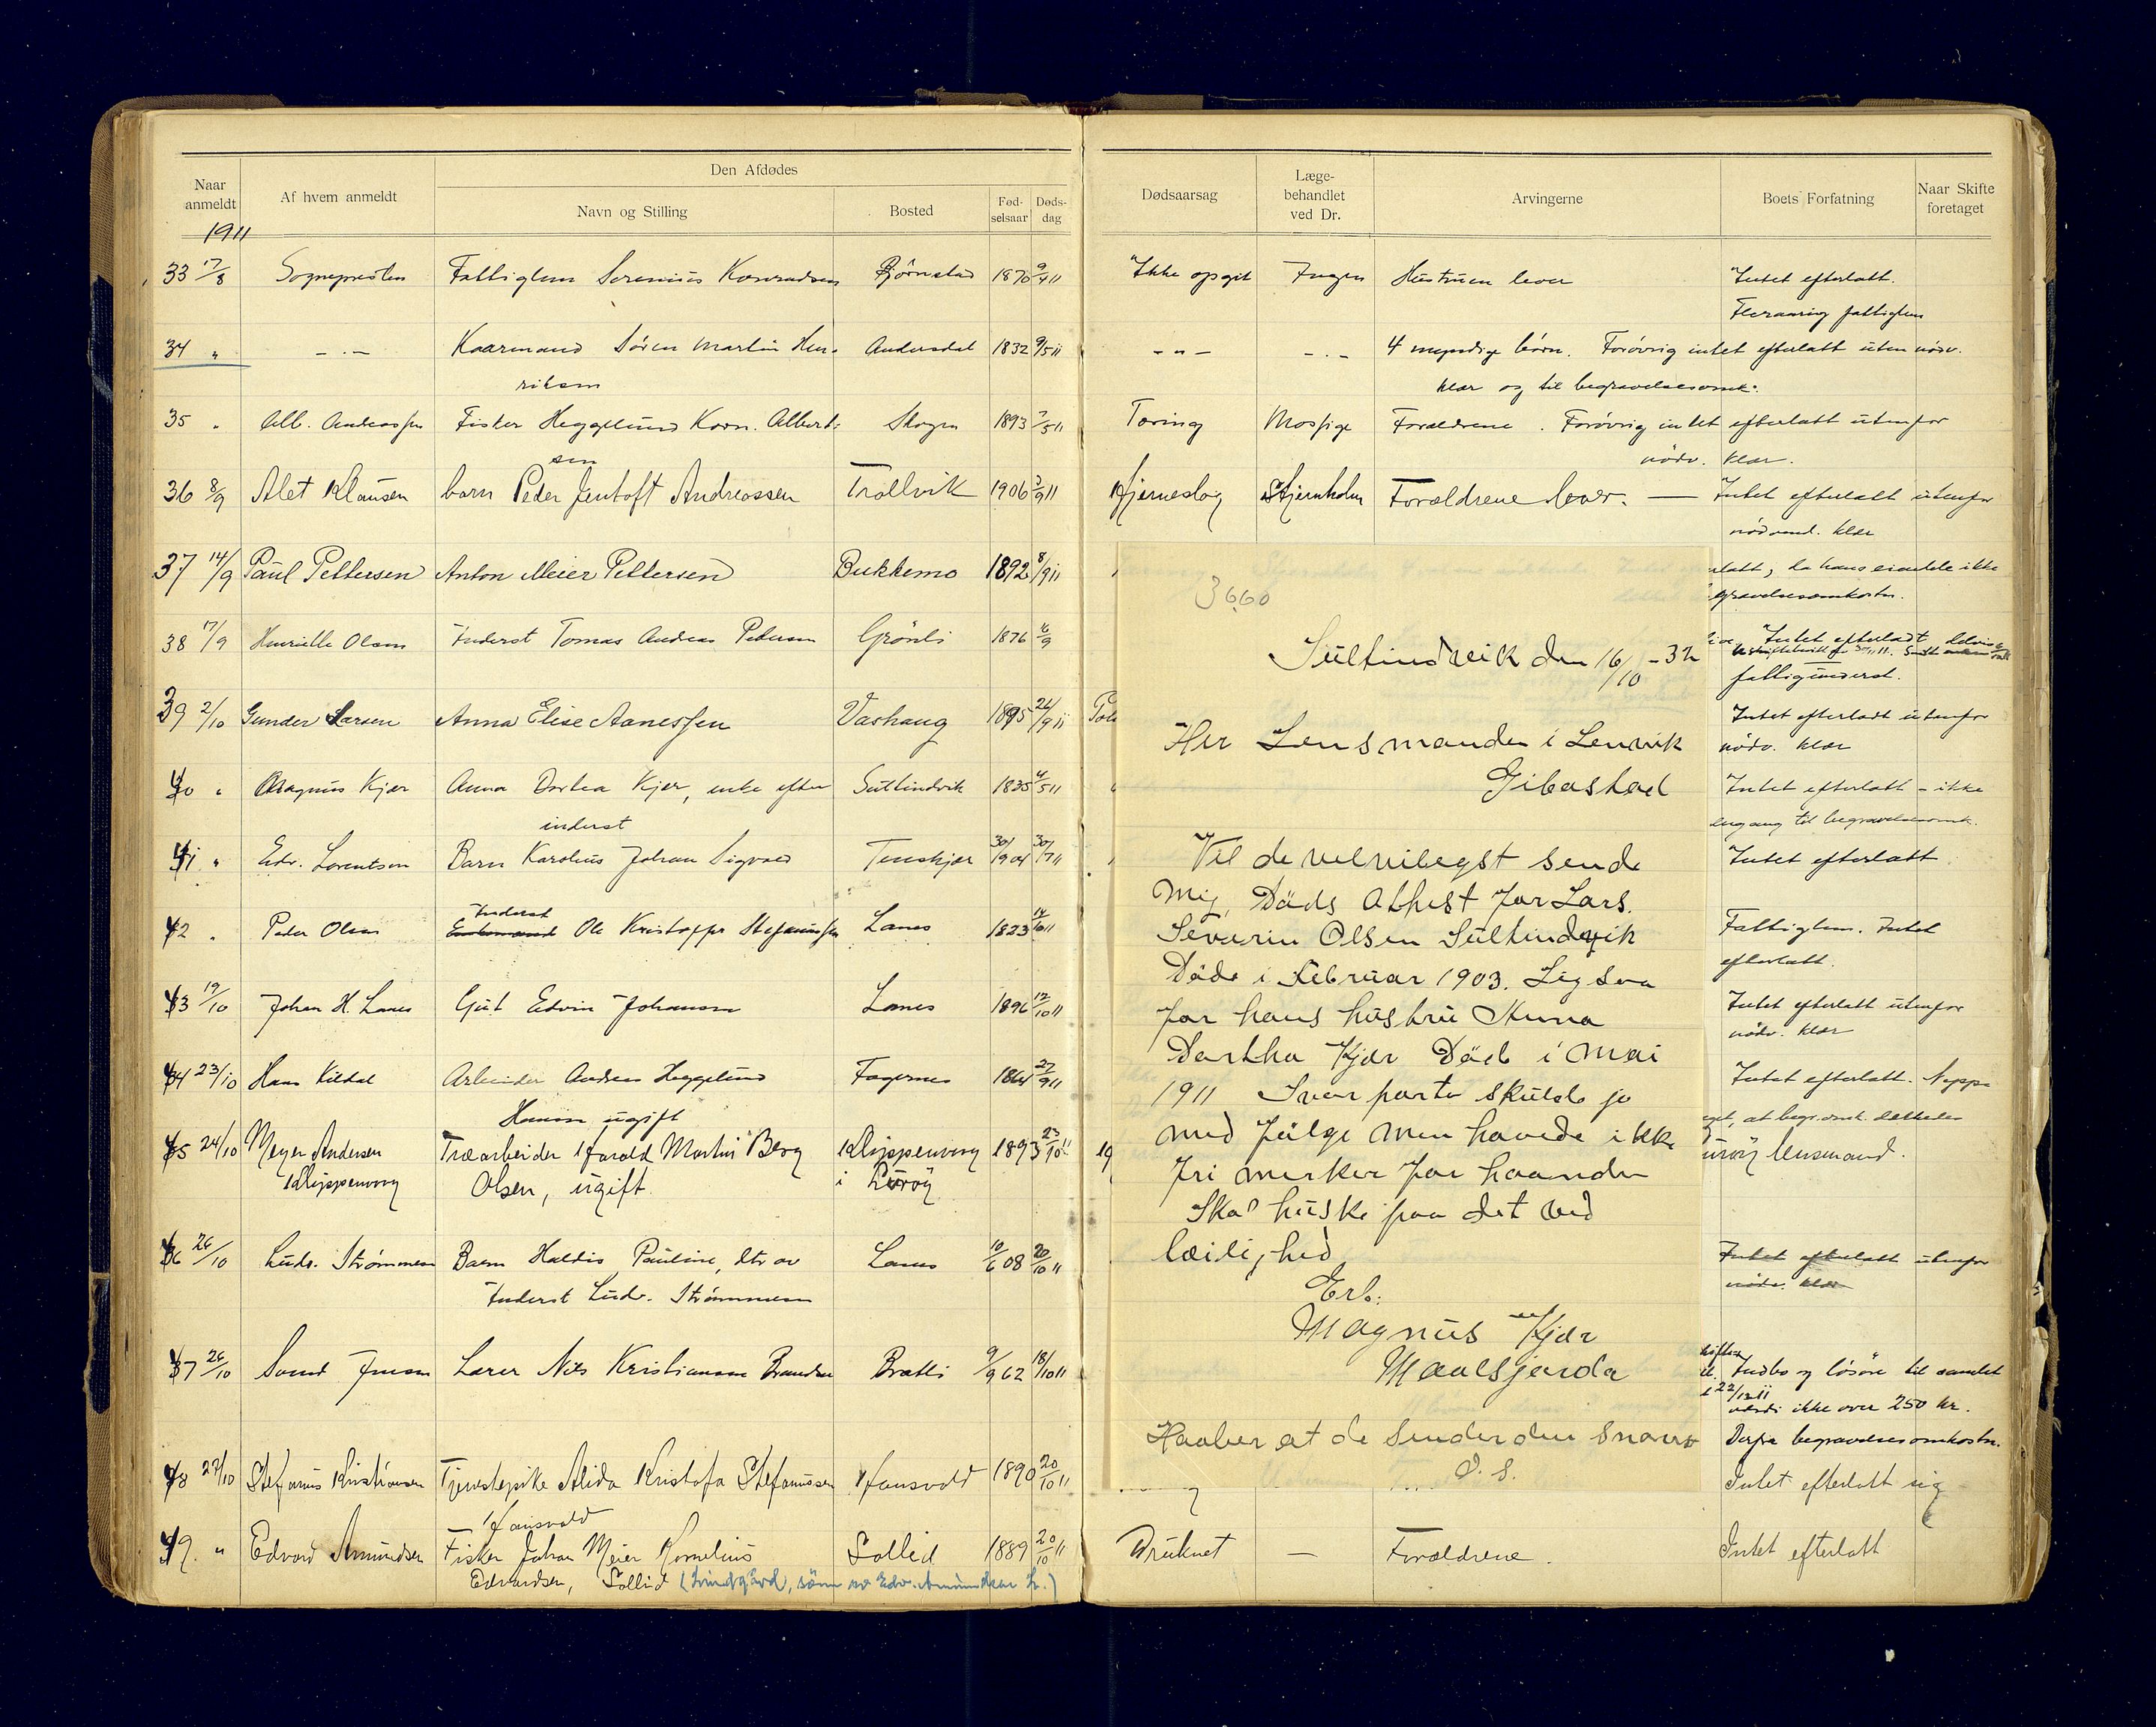 Naar anmeldt
Af hvem anmeldt
Den Afdødes
Navn og Stilling
Bosted
Fød-selsaar
Døds-dag
Dødsaarsag
Læge-behandlet ved Dr.
Arvingerne
Boets Forfatning
Naar Skifte foretaget
1911
33 17/8 Sognepresten Fattiglem Serenius Konradsen Bjørnstad 1870 9/4 11 Ikke opgit Ingen Hustruen lever Intet efterlatt.
Fleraarig fattiglem
34 " — " — Kaarmand Sören Martin Hen- Andersdal 1832 9/5 11 — " — — " — 4 myndige börn. Forövrig intet efterlatt uten nödv.
riksen klær og til begravelsesomk.
35 " Alb. Andreassen Fisker Heggelund Korn. Albert- Skogen 1893 7/5 11 Töring Mossige Forældrene. Forövrig intet efterlatt utenfor
sen nödv. klær.
36 8/9 Alet Klausen barn Peder Jentoft Andreassen Trollvik 1906 3/9 11 Hjerneslag Stjernholm Forældrene lever. — Intet efterlatt utenfor
nödvend. klær
37 14/9 Paul Pettersen Anton Meier Pettersen Bukkemo 1892 8/9 11 latt, da hans eiendele ikke
gravelsesomkostn.
38 17/9 Henrielle Olsen Inderst Tomas Andreas Pedersen Grönli 1876 6/9 Intet efterladt
fattiginderst.
39 2/10 Gunder Larsen Anna Elise Aanessen Vashaug 1895 24/9 11 Intet efterladt utenfor
nödv. klær
40 " Magnus Kjær Anna Dortea Kjær, enke efter Sultindvik 1835 4/5 11 Intet efterlatt - ikke
inderst engang til begravelsesomk.
41 " Edv. Lorentsen Barn Karolius Johan Sigvald Tennskjær 30/1 1904 30/7 11 Intet efterlatt
42 " Peder Olsen Inderst Ole Kristoffer Stefanussen Lanes 1823 14/10 11 Fattiglem. Intet
efterlatt.
43 19/10 Johan H. Lanes Gut Edvin Johansen Lanes 1896 12/10 11 Intet efterlatt utenfor
nödv. klær
44 23/10 Hans Kildal Arbeider Andreas Heggelund Fagernes 1864 27/9 11 Intet efterlatt. Neppe
Hansen ugift
45 24/10 Meyer Andersen Træarbeider Harald Martin Berg Klippenvåg 1893 23/10 11 luröy lensmand.
Klippenvåg Olsen, ugift i Luröy
46 26/10 Ludv. Strömmesen Barn Haldis Pauline, dtr av Lanes 10/6 08 20/10 11 Intet efterlatt utenfor
Inderst Ludv. Strömmesen nödv. klær
47 26/10 Svend Jensen Lærer Nils Kristiansen Brandser Bratli 9/9 62 18/10 11 Indbo og lösöre til samlet
22/12 11 værdi ikke over 250 kr.
Derfra begravelsesomkostn.
48 27/10 Stefanus Kristiansen Tjenestepike Alida Kristofa Stefanussen Hansvold 1890 20/10 11 Intet efterlatt sig
Hansvold
49. " Edvard Amundsen Fisker Johan Meier Kornelius Sollid 1889 20/10 11 Druknet — Forældrene. Intet efterlatt
Edvardsen, Sollid (Lindgård, sönn av Edv. Amundsen L.)
3660
Sultindvik den 16/10 - 32
Her Lensmanden i Lenvik
Gibostad
Vil de velvilegst sende
Mig, Döds Athest for Lars.
Severin Olsen Sultindvik
Döde i Februar 1903. Lig saa
for hans hustru Anna
Dorthea Kjær Död i mai
1911 Svar porto skulde jo
med fölge men havede ikke
fri merker for haanden
Skal huske paa det ved
læilighed
Erb.
Magnus Kjær
Maalsjorda
Haaber at de sender den snarest
D. S.